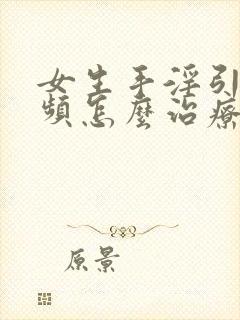 女生手淫引
頻怎麼治療
原景